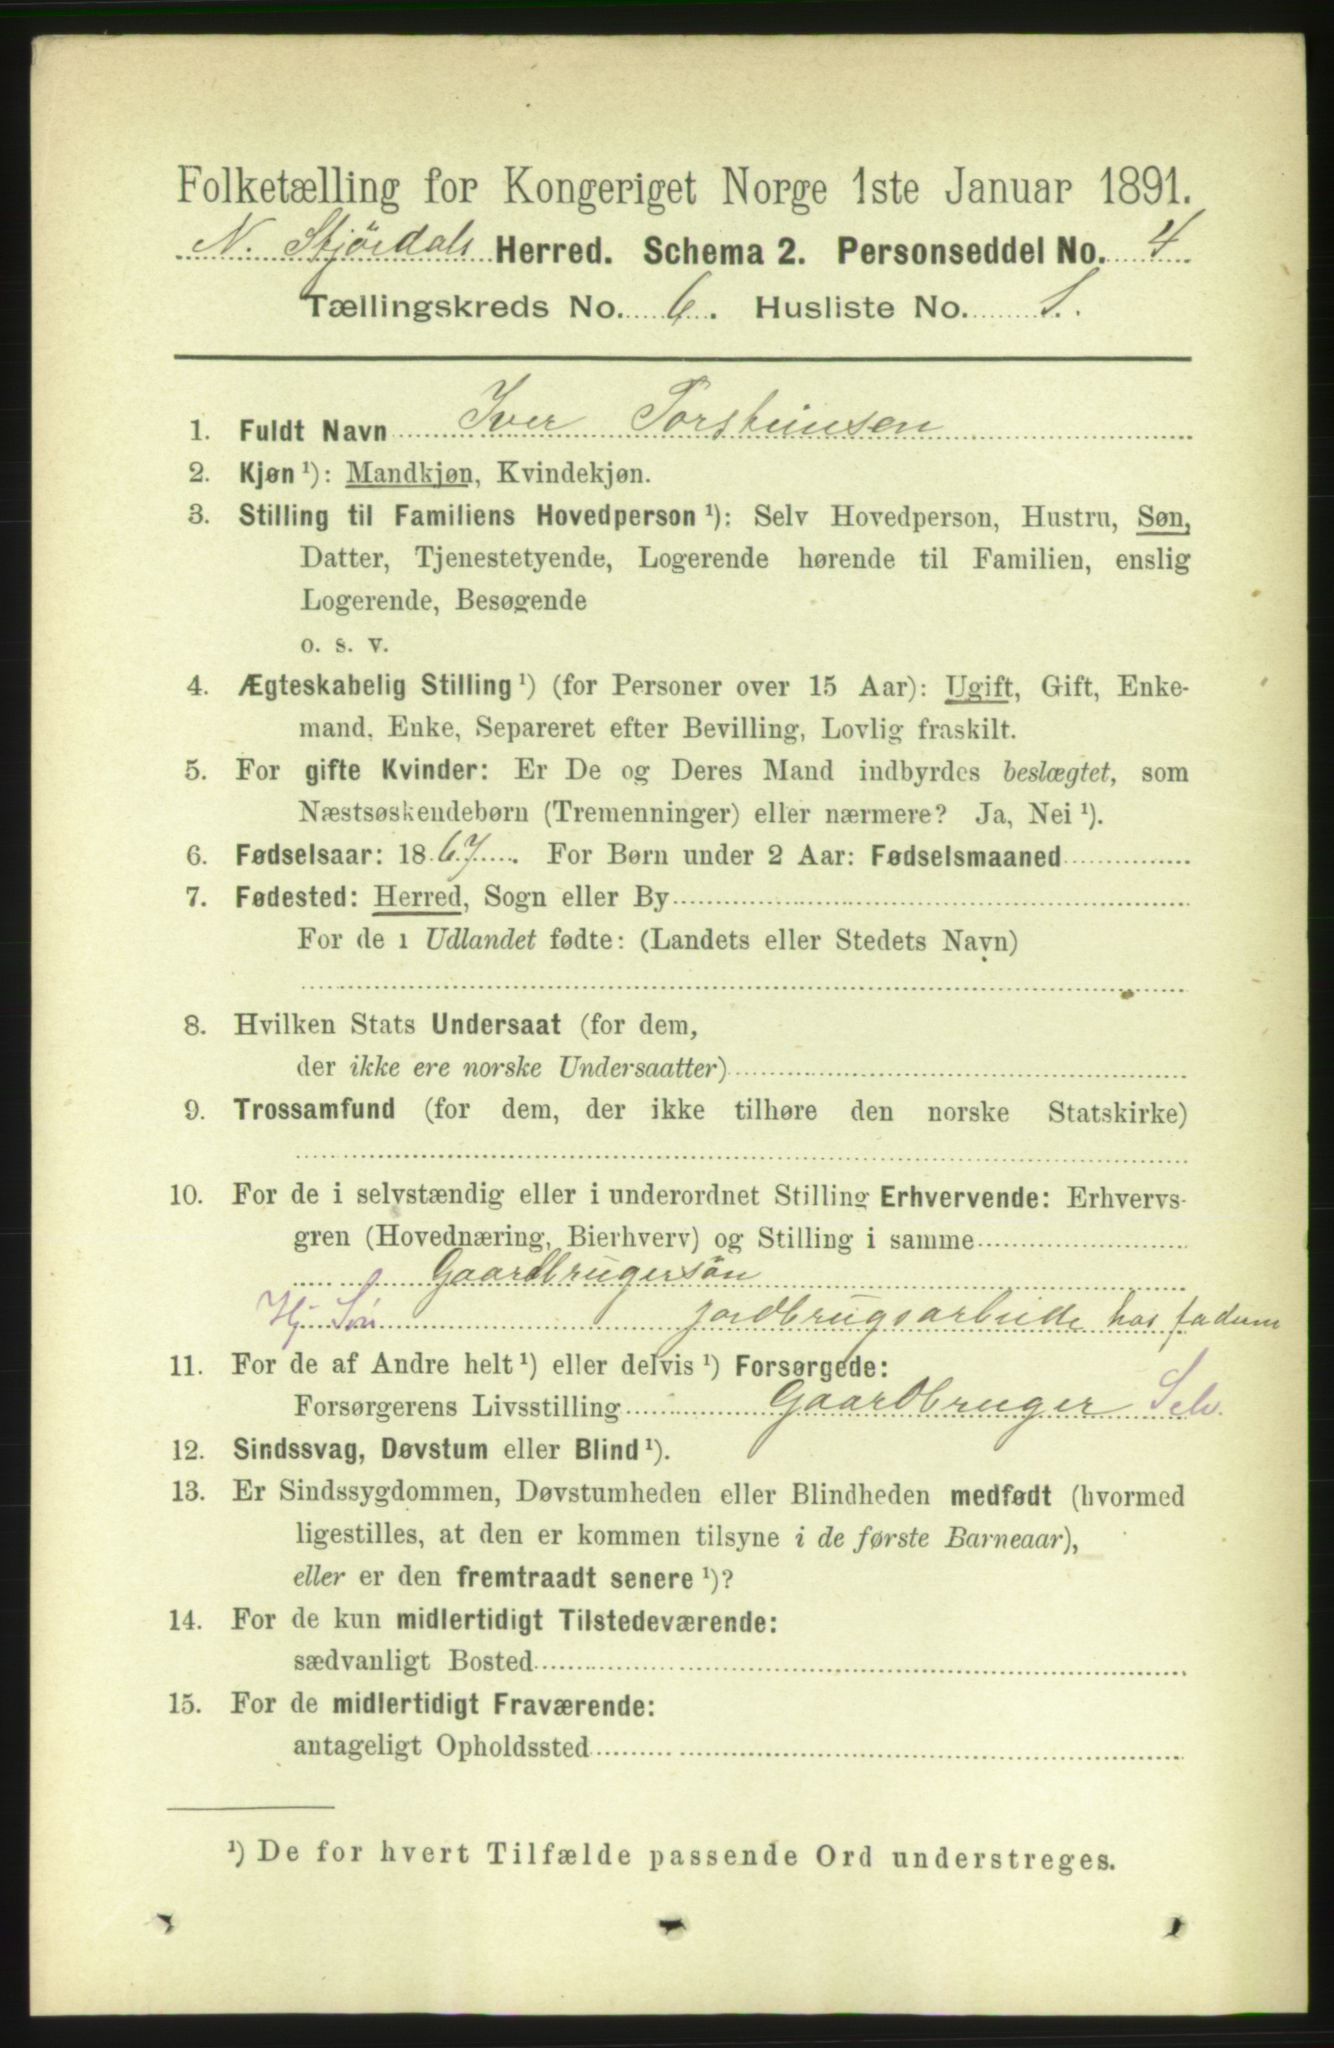 Folketælling for Kongeriget Norge 1ste Januar 1891.
N. Stjørdals Herred. Schema 2. Personseddel No. 4
Tællingskreds No. 6. Husliste No.
1. Fuldt Navn Iver Torsteinsen
2. Kjøn ¹): Mandkjøn, Kvindekjøn.
3. Stilling til Familiens Hovedperson ¹): Selv Hovedperson, Hustru, Søn,
Datter, Tjenestetyende, Logerende hørende til Familien, enslig
Logerende, Besøgende
o. s. v.
4. Ægteskabelig Stilling ¹) (for Personer over 15 Aar): Ugift, Gift, Enke-
mand, Enke, Separeret efter Bevilling, Lovlig fraskilt.
5. For gifte Kvinder: Er De og Deres Mand indbyrdes beslægtet, som
Næstsøskendebørn (Tremenninger) eller nærmere? Ja, Nei ¹).
6. Fødselsaar: 1867. For Børn under 2 Aar: Fødselsmaaned
7. Fødested: Herred, Sogn eller By
For de i Udlandet fødte: (Landets eller Stedets Navn)
8. Hvilken Stats Undersaat (for dem,
der ikke ere norske Undersaatter)
9. Trossamfund (for dem, der ikke tilhøre den norske Statskirke)
10. For de i selvstændig eller i underordnet Stilling Erhvervende: Erhvervs-
gren (Hovednæring, Bierhverv) og Stilling i samme
Gaardbrugersøn
Hj. Søn jordbrugsarbeide hos faderen
11. For de af Andre helt ¹) eller delvis ¹) Forsørgede:
Forsørgerens Livsstilling Gaardbruger Selv.
12. Sindssvag, Døvstum eller Blind ¹).
13. Er Sindssygdommen, Døvstumheden eller Blindheden medfødt (hvormed
ligestilles, at den er kommen tilsyne i de første Barneaar),
eller er den fremtraadt senere ¹)?
14. For de kun midlertidigt Tilstedeværende:
sædvanligt Bosted
15. For de midlertidigt Fraværende:
antageligt Opholdssted
¹) De for hvert Tilfælde passende Ord understreges.